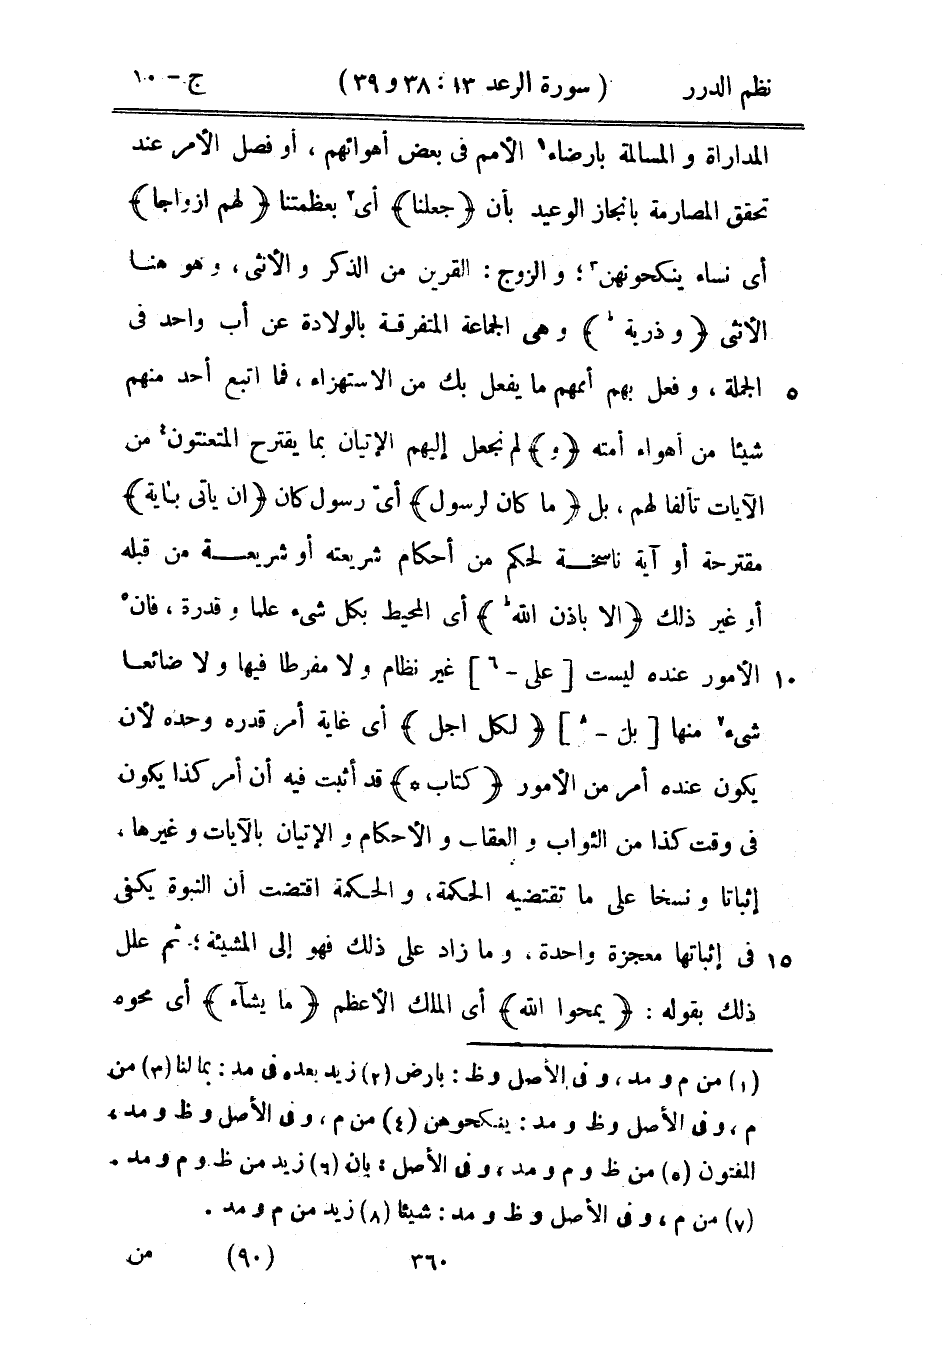 نظم الدرر ( سورة الرعد ١٣ : ٣٨ و ٣٩ ) ج - ١٠
المداراة و المسالمة بارضاء١ الأمم فى بعض أهوائهم ، أو فصل الأمر عند
تحقق المصارمة بانجاز الوعيد بأن ﴿ جعلنا ﴾ أى٢ بعظمتنا ﴿ لهم ازواجا ﴾
أى نساء ينكحونهن٣ ؛ و الزوج : القرين من الذكر و الأنثى ، و هو هنا
الأنثى ﴿ و ذرية ؕ ﴾ و هى الجماعة المتفرقة بالولادة عن أب واحد فى
الجملة ، و فعل بهم أممهم ما يفعل بك من الاستهزاء ، فما اتبع أحد منهم ٥
شيئا من أهواء أمته ﴿ و ﴾ لم نجعل إليهم الإتيان بما يقترح المتعنتون٤ من
الآيات تألفا لهم ، بل ﴿ ما كان لرسول ﴾ أىّ رسول كان ﴿ ان ياتى باٰية ﴾
مقترحة أو آية ناسخة لحكم من أحكام شريعته أو شريعة من قبله
أو غير ذلك ﴿ الا باذن الله ؕ ﴾ أى المحيط بكل شىء علما و قدرة ، فان٥
الأمور عنده ليست [ على - ٦ ] غير نظام و لا مفرطا فيها و لا ضائعا ١٠
شىء٧ منها [ بل - ٨ ] ﴿ لكل اجل ﴾ أى غاية أمر قدره وحده لأن
يكون عنده أمر من الأمور ﴿ كتاب ه ﴾ قد أثبت فيه أن أمر كذا يكون
فى وقت كذا من الثواب و العقاب و الأحكام و الإتيان بالآيات و غيرها ،
إثباتا و نسخا على ما تقتضيه الحكمة ، و الحكمة اقتضت أن النبوة يكفى
فى إثباتها معجزة واحدة ، و ما زاد على ذلك فهو إلى المشيئة ؛ ثم علل ١٥
ذلك بقوله : ﴿ يمحوا الله ﴾ أى الملك الأعظم ﴿ ما يشآء ﴾ أى محوه
(١) من م و مد ، و فى الأصل و ظ : بارض (٢) زيد بعده فى مد : بما لنا (٣) من
م ، و فى الأصل و ظ و مد : ينكحوهن (٤) من م ، و فى الأصل و ظ و مد :
المفتون (٥) من ظ و م و مد ، و فى الأصل : بان (٦) زيد من ظ و م و مد .
(٧) من م ، و فى الأصل و ظ و مد : شيئا (٨) زيد من م و مد .
٣٦٠ (٩٠) من